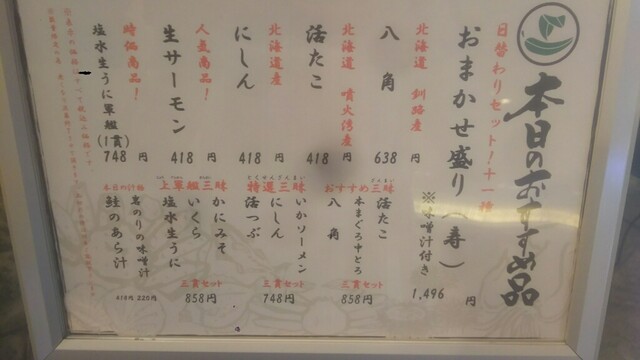 本日のおすすめ品
日替わりセット！十一種
おまかせ盛り（寿）
※味噌汁付き
1,496 円
北海道 釧路産
八角
638 円
北海道 噴火湾産
活たこ
418 円
北海道産
にしん
418 円
人気商品！
生サーモン
418 円
時価商品！
塩水生うに軍艦(1貫)
748 円
おすすめ三昧
活たこ
本まぐろ中とろ
八角
三貫セット
858円
特選三昧
いかソーメン
にしん
活つぶ
三貫セット
748円
上軍艦三昧
かにみそ
いくら
塩水生うに
三貫セット
858円
本日の汁椀
岩のりの味噌汁
220円
鮭のあら汁
418円